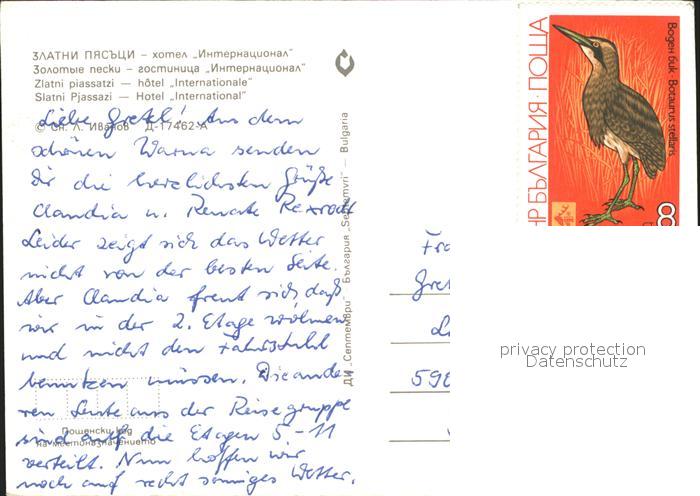 ЗЛАТНИ ПЯСЪЦИ – хотел „Интернационал“
Золотые пески – гостиница „Интернационал“
Zlatni piassatzi — hôtel „Internationale“
Slatni Pjassazi — Hotel „International“
© Сн. Л. Иванов Д-17462-А
Liebe Gretel! Aus dem
schönen Warna senden
Dir die herzlichsten Grüße
Claudia u. Renate Rexrodt
Leider zeigt sich das Wetter
nicht von der besten Seite.
Aber Claudia freut sich, daß
wir in der 2. Etage wohnen
und nicht den Fahrstuhl
benutzen müssen. Die ande-
ren Leute aus der Reisegruppe
sind auf die Etagen 5 – 11
verteilt. Nun hoffen wir
noch auf recht sonniges Wetter.
Пощенски код
на местоназначението
ДИ „Септември“ България „Septemvri“ — Bulgaria
НР БЪЛГАРИЯ · ПОЩА
Воден бик Botaurus stellaris
8
Fra
Gret
590
privacy protection
Datenschutz